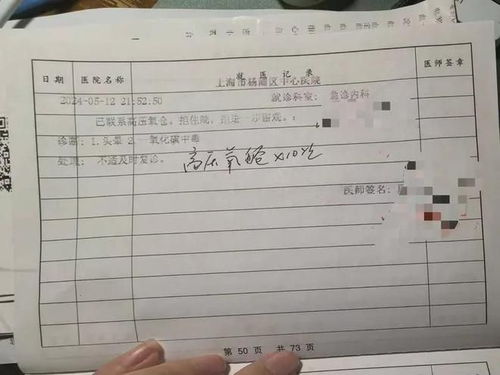 就医记录
日期 医院名称 医师签章
上海市杨浦区中心医院
2024-05-12 21:52:50 就诊科室: 急诊内科
已联系高压氧仓。拒住院，拒进一步留观。
诊断: 1.头晕 2.一氧化碳中毒
处理: 不适及时复诊。
高压氧舱 x10次
医师签名:
第 50 页 共 73 页